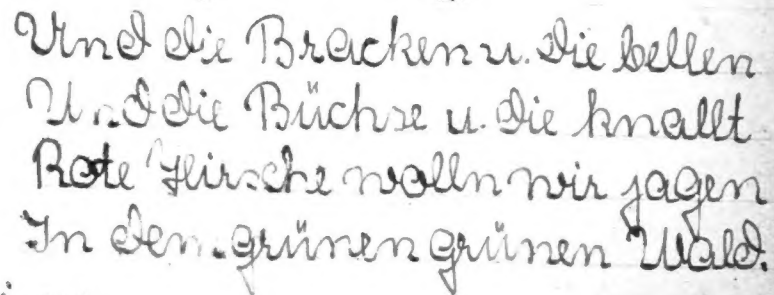 Und die Bracken u. die bellen
Und die Büchse u. die knallt
Rote Hirsche wolln wir jagen
In dem grünen grünen Wald.